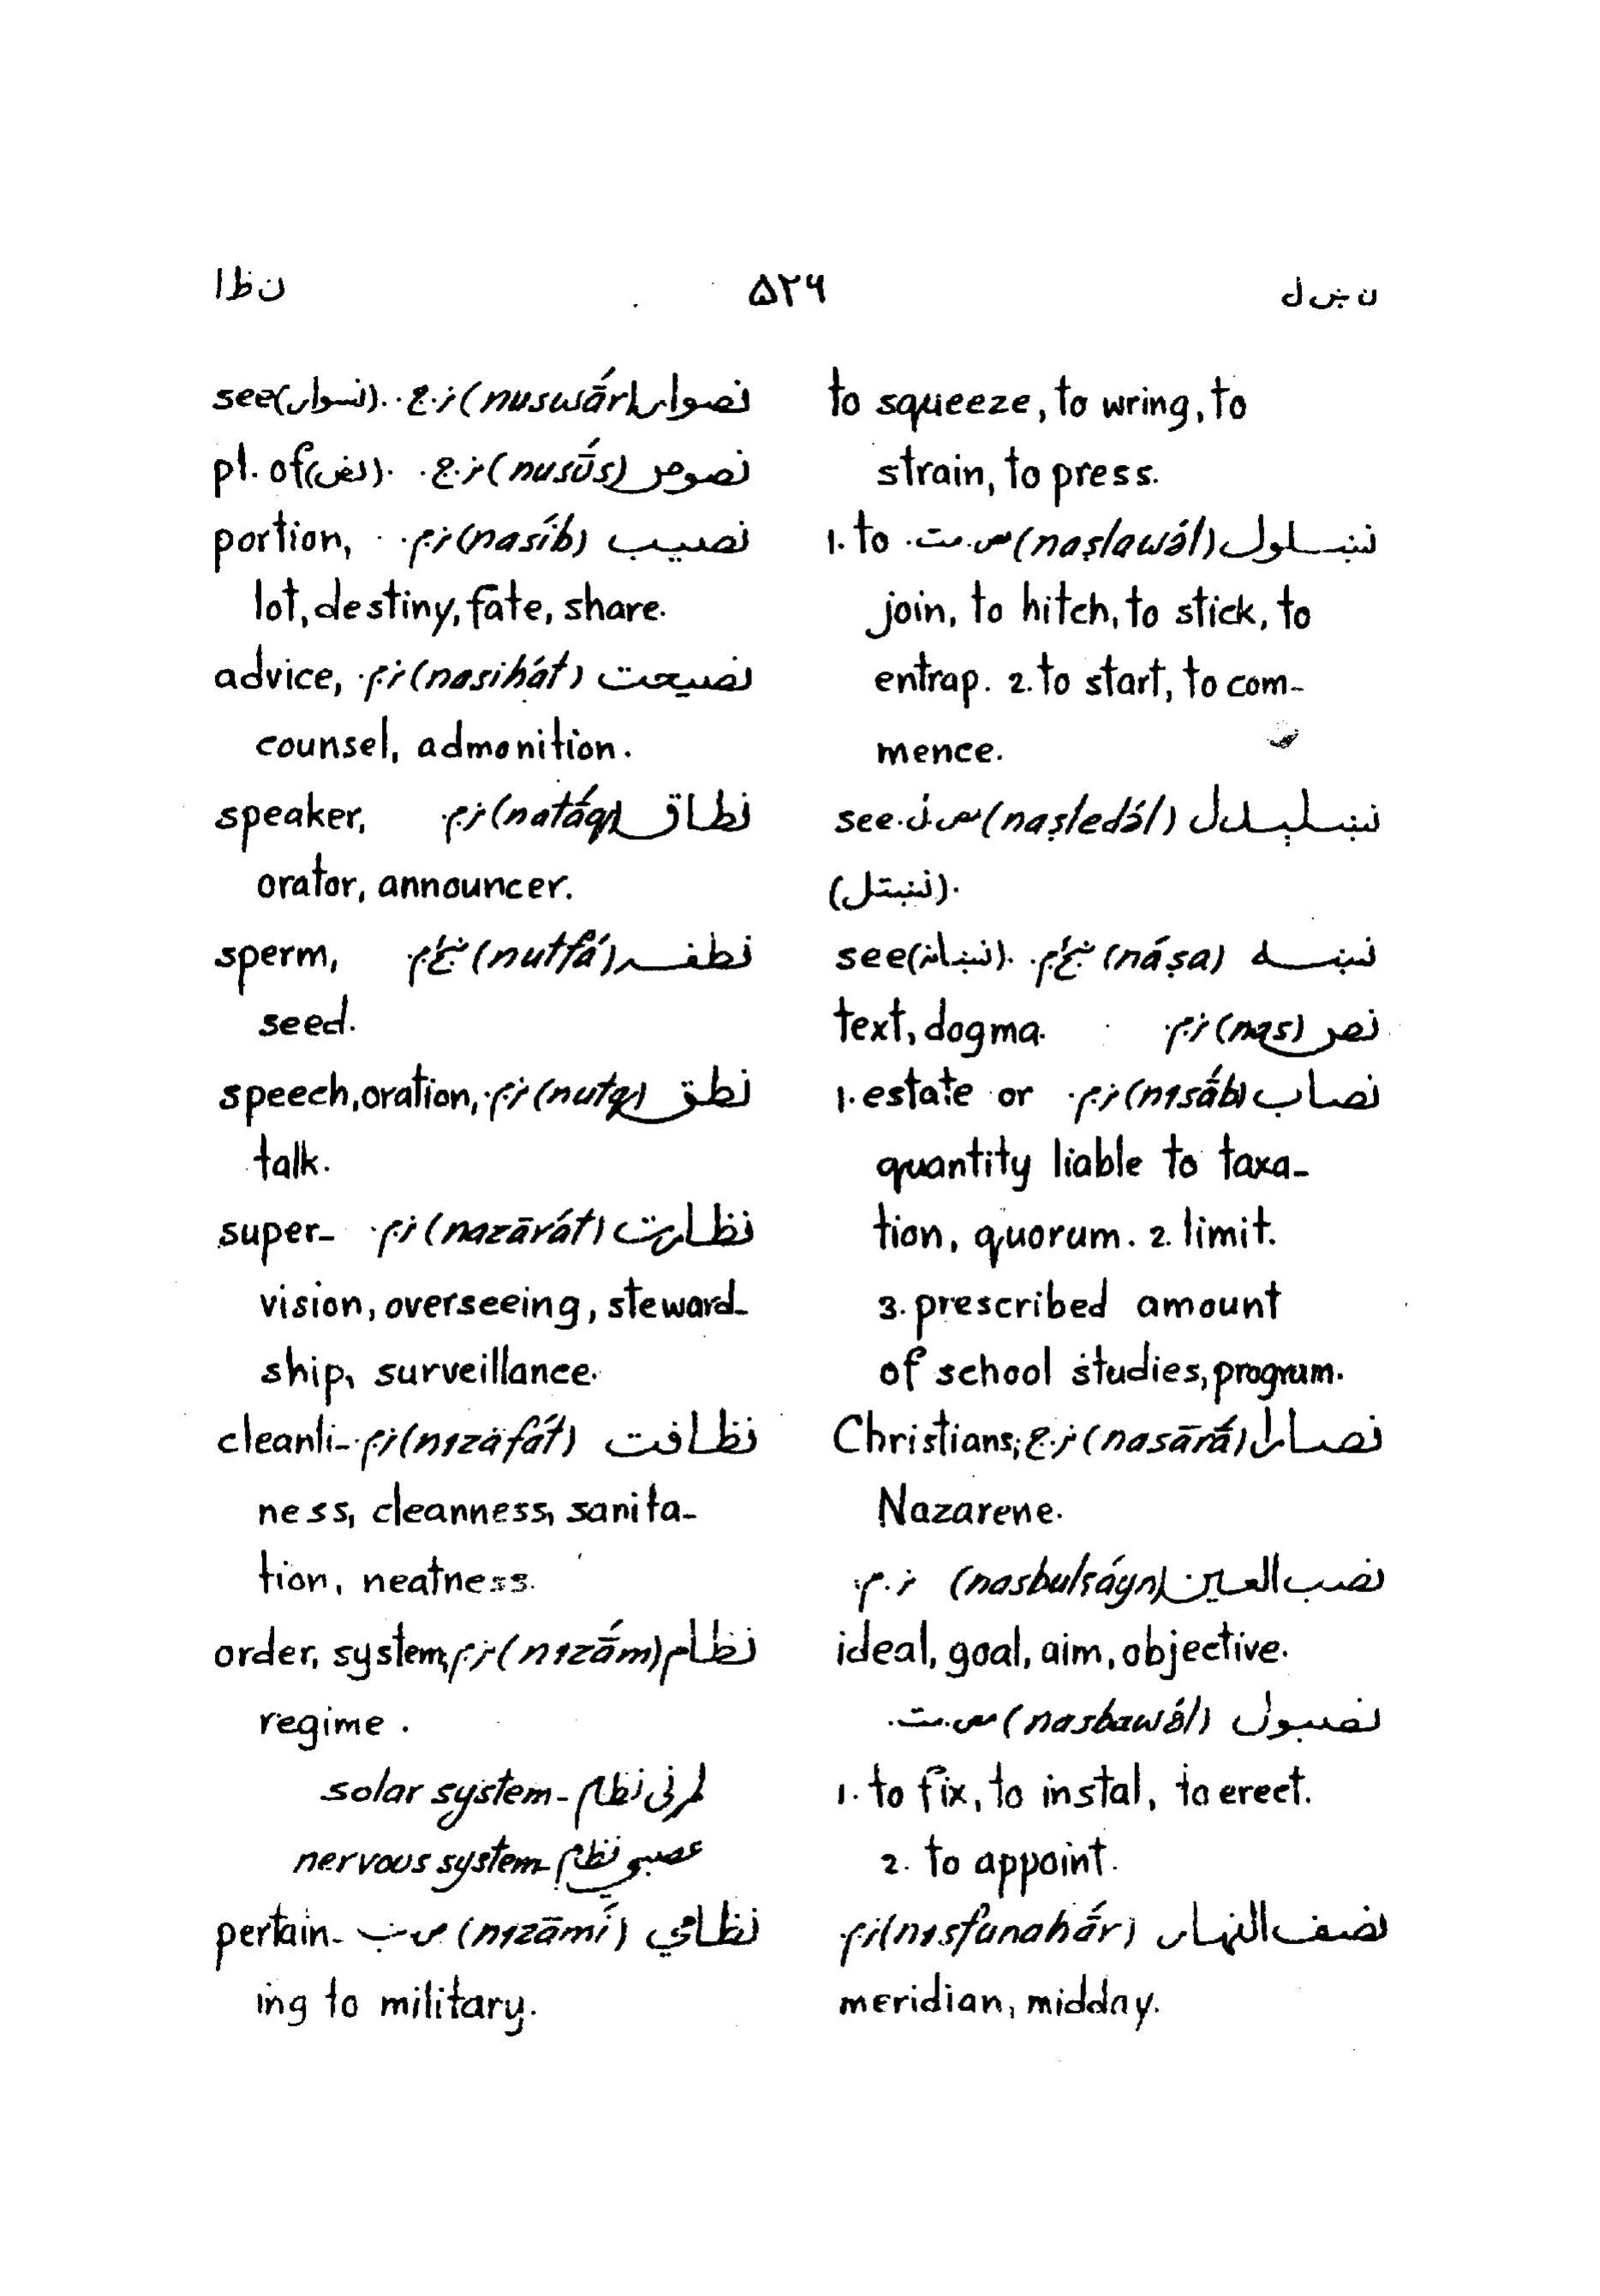 ن ښ ل
۵۲۶
ن ظ ا
to squeeze, to wring, to
strain, to press.
نښلول (naṣlawə́l) مص.مت. 1. to
join, to hitch, to stick, to
entrap. 2. to start, to com-
mence.
نښلېدل (naṣledə́l) مص.ل. see
(نښتل).
نښه (náṣa) ښځ.م. see (نښانه).
نص (nas) نر.م. text, dogma.
نصاب (nɪsā́b) نر.م. 1. estate or
quantity liable to taxa-
tion, quorum. 2. limit.
3. prescribed amount
of school studies, program.
نصارا (nasārā́) نر.ج. Christians;
Nazarene.
نصب العين (nasbulʕáyn) نر.م.
ideal, goal, aim, objective.
نصبول (nasbawə́l) مص.مت.
1. to fix, to instal, to erect.
2. to appoint.
نصف النهار (nɪsfunahā́r) نر.م
meridian, midday.
نصوار (nuswā́r) نر.ج. see (نسوار).
نصوص (nusū́s) نر.ج. pl. of (نص).
نصيب (nasíb) نر.م. portion,
lot, destiny, fate, share.
نصيحت (nasihát) نر.م. advice,
counsel, admonition.
نطاق (natā́q) نر.م. speaker,
orator, announcer.
نطفه (nutfá) ښځ.م. sperm,
seed.
نطق (nutq) نر.م. speech, oration,
talk.
نظارت (nazārát) نر.م. super-
vision, overseeing, steward-
ship, surveillance.
نظافت (nɪzāfát) نر.م. cleanli-
ness, cleanness, sanita-
tion, neatness.
نظام (nɪzā́m) نر.م. order, system,
regime.
لمرنى نظام - solar system
عصبي نظام - nervous system
نظامي (nɪzāmí) ص.نب pertain-
ing to military.